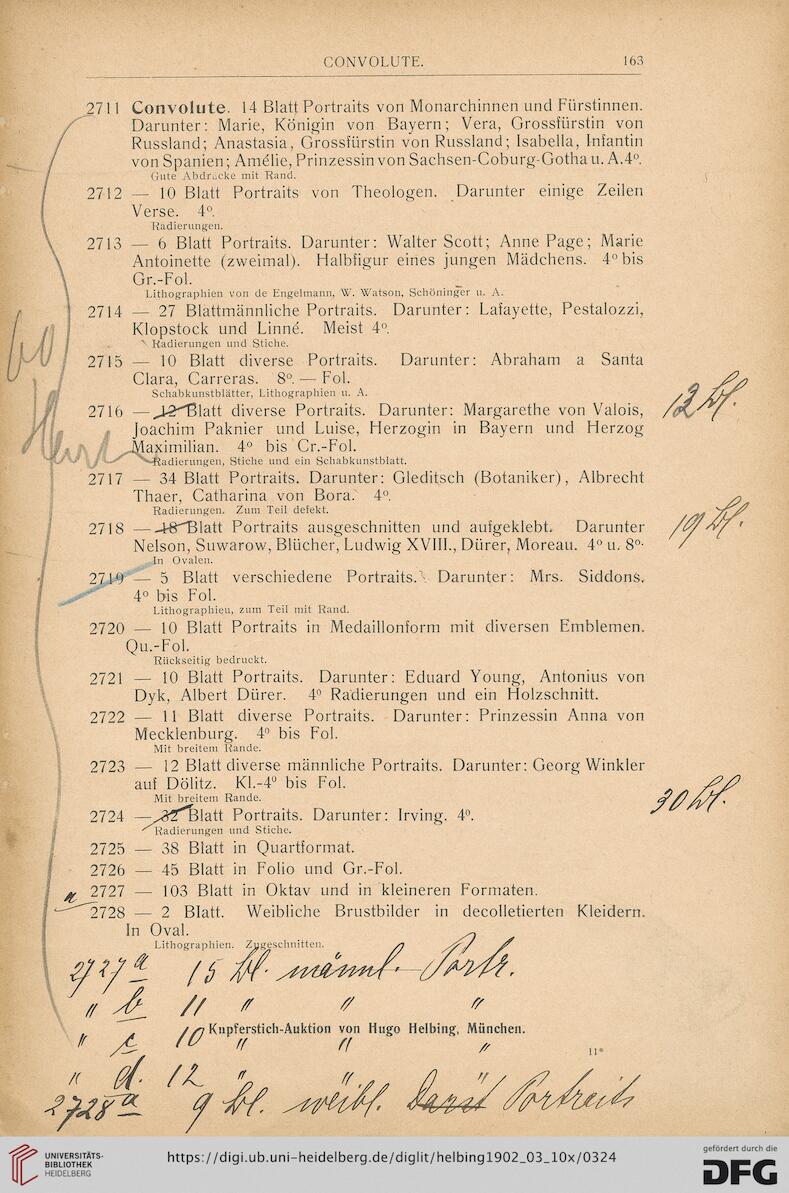 CONVOLUTE. 163
2711 Convolute. 14 Blatt Portraits von Monarchinnen und Fürstinnen.
Darunter: Marie, Königin von Bayern; Vera, Grossfürstin von
Russland; Anastasia, Grossfürstin von Russland; Isabella, Infantin
von Spanien; Amélie, Prinzessin von Sachsen-Coburg-Gotha u. A. 4º.
Gute Abdrucke mit Rand.
2712 — 10 Blatt Portraits von Theologen. Darunter einige Zeilen
Verse. 4º.
Radierungen.
2713 — 6 Blatt Portraits. Darunter: Walter Scott; Anne Page; Marie
Antoinette (zweimal). Halbfigur eines jungen Mädchens. 4º bis
Gr.-Fol.
Lithographien von de Engelmann, W. Watson, Schöninger u. A.
2714 — 27 Blattmännliche Portraits. Darunter: Lafayette, Pestalozzi,
Klopstock und Linné. Meist 4º.
Radierungen und Stiche.
60
2715 — 10 Blatt diverse Portraits. Darunter: Abraham a Santa
Clara, Carreras. 8º. — Fol.
Schabkunstblätter, Lithographien u. A.
2716 — 12 Blatt diverse Portraits. Darunter: Margarethe von Valois, 13 Bl.
Joachim Paknier und Luise, Herzogin in Bayern und Herzog
Maximilian. 4º bis Cr.-Fol.
Radierungen, Stiche und ein Schabkunstblatt.
2717 — 34 Blatt Portraits. Darunter: Gleditsch (Botaniker), Albrecht
Thaer, Catharina von Bora. 4º.
Radierungen. Zum Teil defekt.
2718 — 18 Blatt Portraits ausgeschnitten und aufgeklebt. Darunter 19 Bl.
Nelson, Suwarow, Blücher, Ludwig XVIII., Dürer, Moreau. 4º u. 8º.
In Ovalen.
2719 — 5 Blatt verschiedene Portraits. Darunter: Mrs. Siddons.
4º bis Fol.
Lithographieu, zum Teil mit Rand.
2720 — 10 Blatt Portraits in Medaillonform mit diversen Emblemen.
Qu.-Fol.
Rückseitig bedruckt.
2721 — 10 Blatt Portraits. Darunter: Eduard Young, Antonius von
Dyk, Albert Dürer. 4º Radierungen und ein Holzschnitt.
2722 — 11 Blatt diverse Portraits. Darunter: Prinzessin Anna von
Mecklenburg. 4º bis Fol.
Mit breitem Rande.
2723 — 12 Blatt diverse männliche Portraits. Darunter: Georg Winkler
auf Dölitz. Kl.-4º bis Fol.
Mit breitem Rande.
2724 — 32 Blatt Portraits. Darunter: Irving. 4º. 30 Bl.
Radierungen und Stiche.
2725 — 38 Blatt in Quartformat.
2726 — 45 Blatt in Folio und Gr.-Fol.
a 2727 — 103 Blatt in Oktav und in kleineren Formaten.
2728 — 2 Blatt. Weibliche Brustbilder in decolletierten Kleidern.
In Oval.
Lithographien. Zugeschnitten.
2727 a 15 Bl. männl. Portr.
" b 11 " " "
Kupferstich-Auktion von Hugo Helbing, München.
" c 10 " " "
11*
" d. 12 " " "
2728 a 9 Bl. weibl. Portraits
UNIVERSITÄTS-
BIBLIOTHEK
HEIDELBERG
https://digi.ub.uni-heidelberg.de/diglit/helbing1902_03_10x/0324
gefördert durch die
DFG